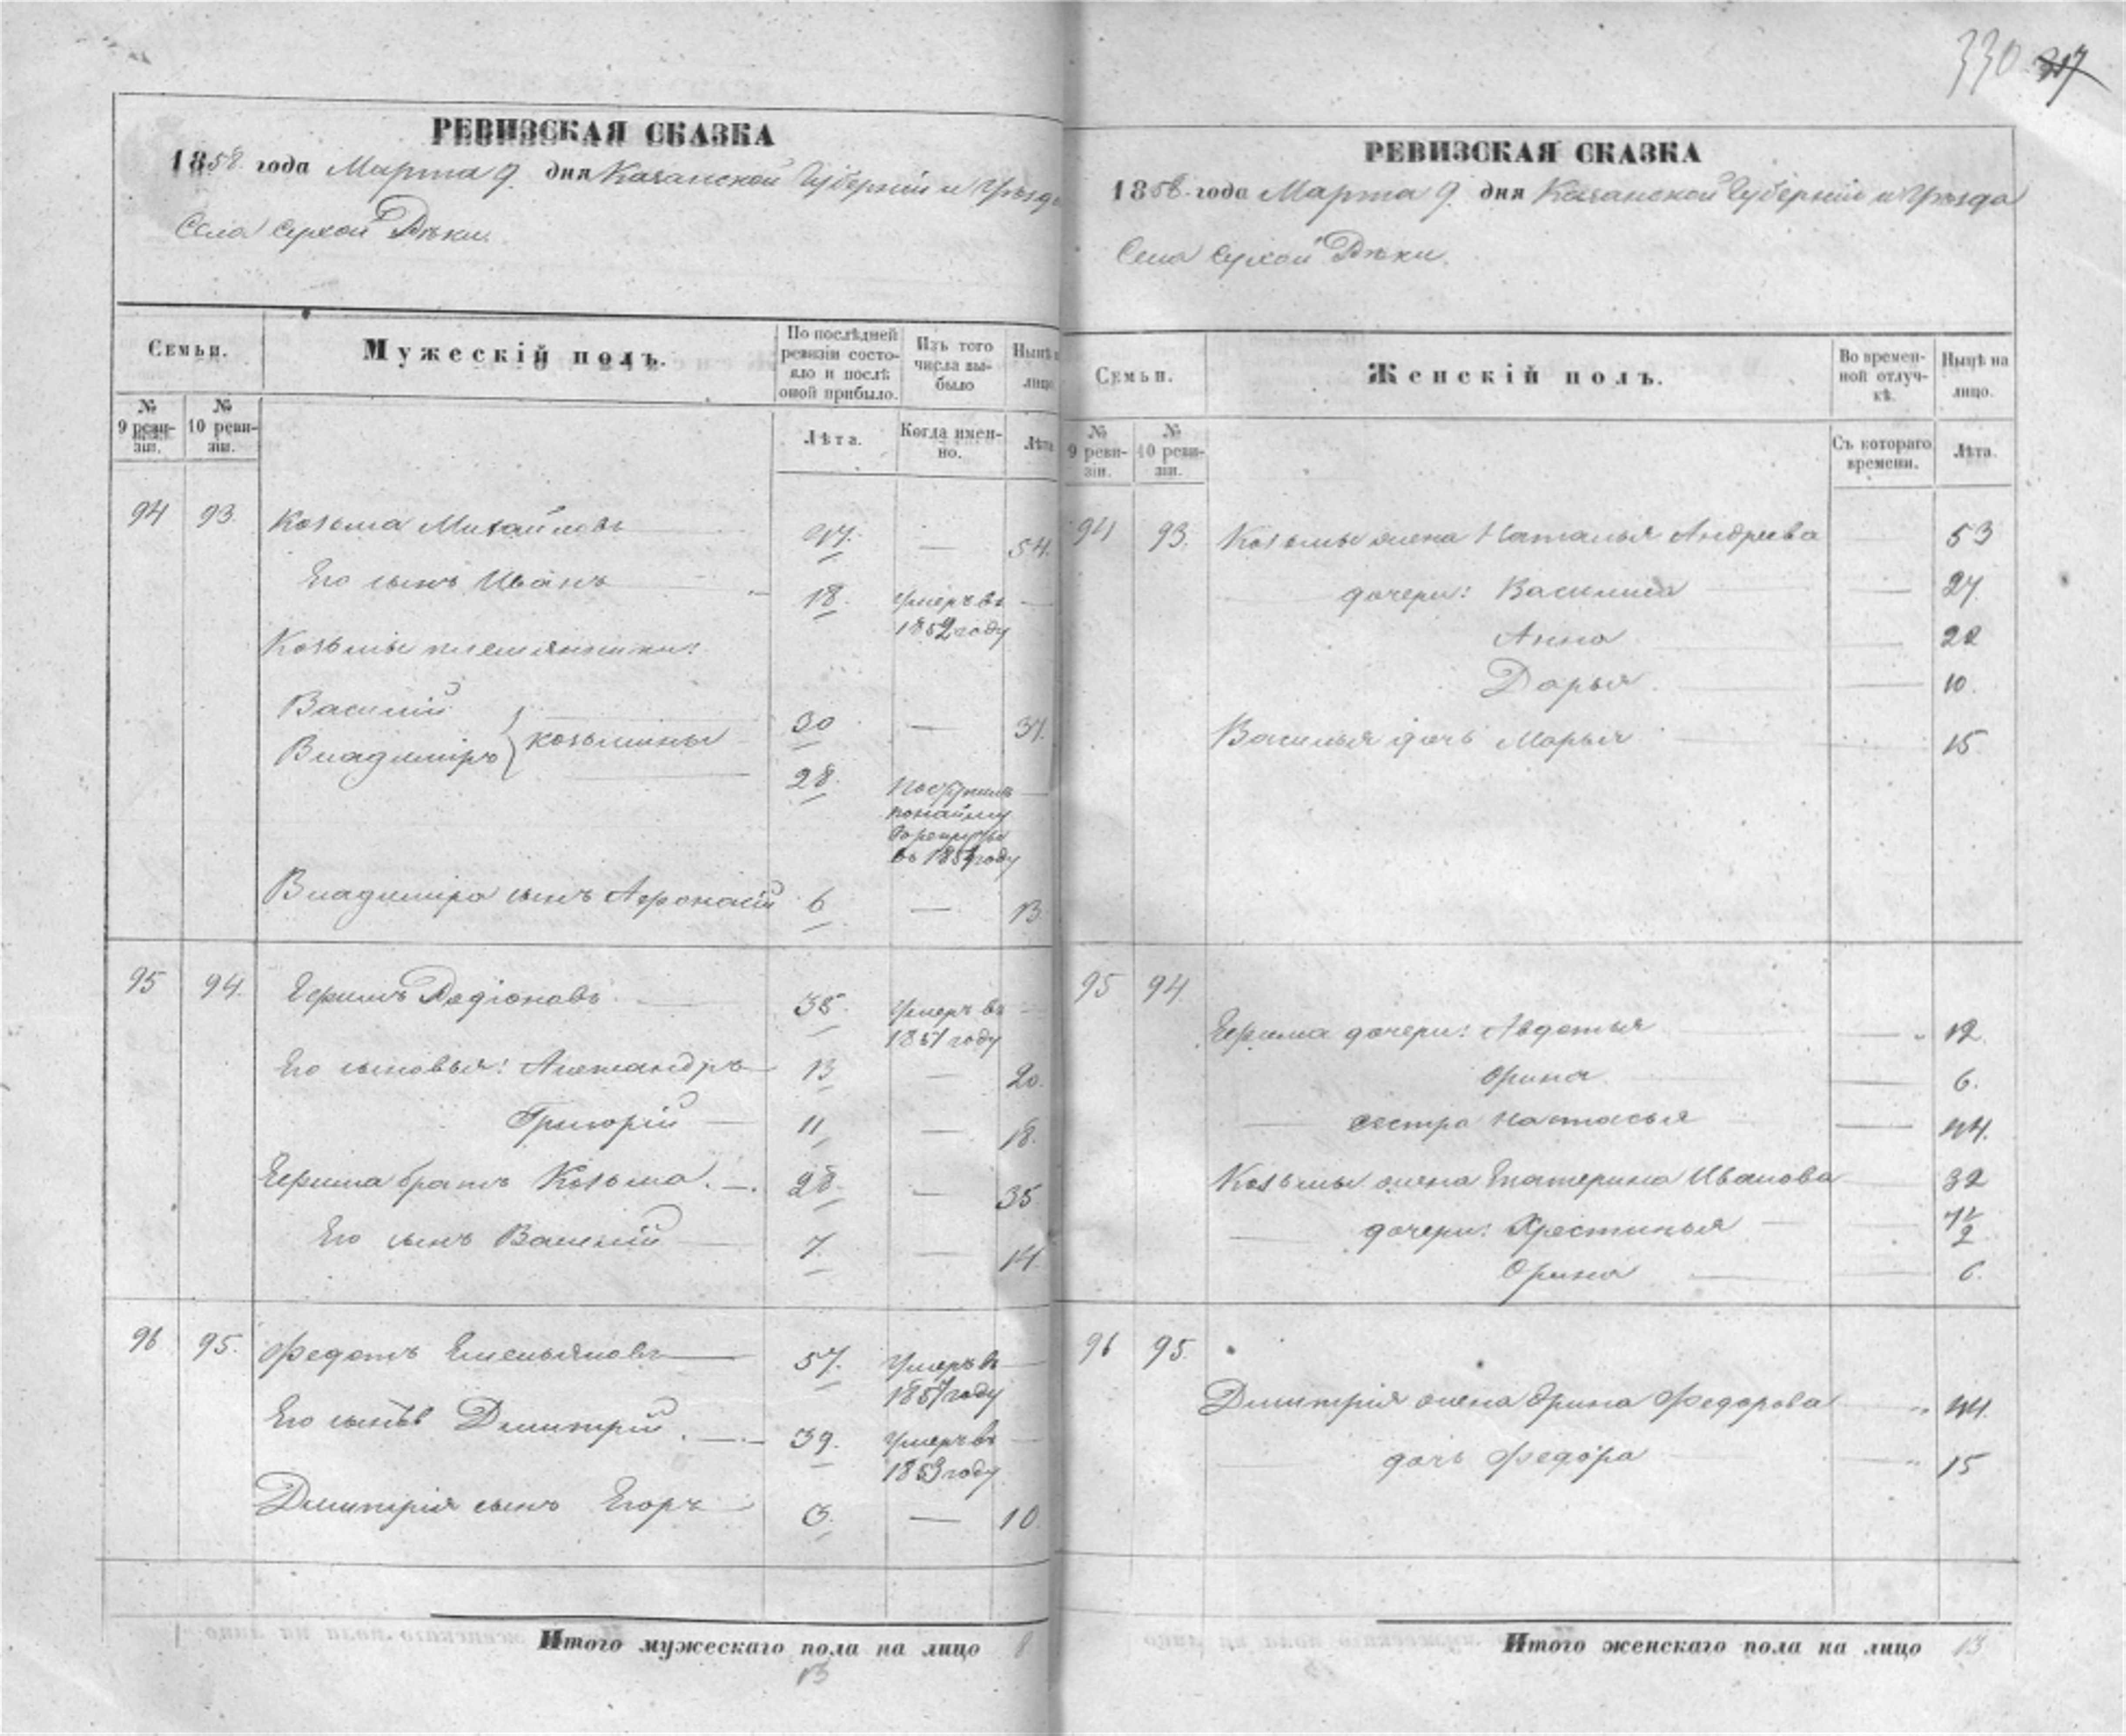 330 317
РЕВИЗСКАЯ СКАЗКА
1858 года Марта 9. дня Казанской Губерніи и Уѣзда
Села Сухой Рѣки.
Семьи.
Мужескій полъ.
По послѣдней ревизіи состояло и послѣ оной прибыло.
Изъ того числа выбыло
Нынѣ на лицо
№ 9 ревизіи.
№ 10 ревизіи.
Лѣта.
Когда именно.
Лѣта
94 93. Козьма Михайловъ 47. — 54.
Его сынъ Иванъ 18. Умеръ въ 1852 году —
Козьмы племянники:
Василій } козьмины 30 — 37.
Владиміръ 28. въ 1854 году —
Владиміра сынъ Афонасій 6 — 13
95 94. Ефимъ Радіоновъ 35. Умеръ въ 1851 году —
Его сыновья: Александръ 13 — 20.
Григорій 11 — 18.
Ефима братъ Козьма 28. — 35
Его сынъ Василій 7. — 14.
96 95. Федотъ Емельяновъ 57. Умеръ въ 1857 году —
Его сынъ Дмитрій 39. Умеръ въ 1853 году —
Дмитрія сынъ Егоръ 3. — 10.
Итого мужескаго пола на лицо 8
13
РЕВИЗСКАЯ СКАЗКА
1858 года Марта 9. дня Казанской Губерніи и Уѣзда
Села Сухой Рѣки.
Семьи.
Женскій полъ.
Во временной отлучкѣ.
Нынѣ на лицо.
№ 9 ревизіи.
№ 10 ревизіи.
Съ котораго времени.
Лѣта.
94 93. Козьмы жена Наталья Андреева — 53
дочери: Василиса — 27.
Анна — 22
Дарья — 10.
Василья дочь Марья 15
95 94
Ефима дочери: Авдотья — 12.
Орина — 6.
сестра Настасья — 44.
Козьмы жена Екатерина Иванова 32
дочери: Хрестинья 1/2
Орина 6.
96 95.
Дмитрія жена Орина Федорова 44.
дочь Федора 15
Итого женскаго пола на лицо 13